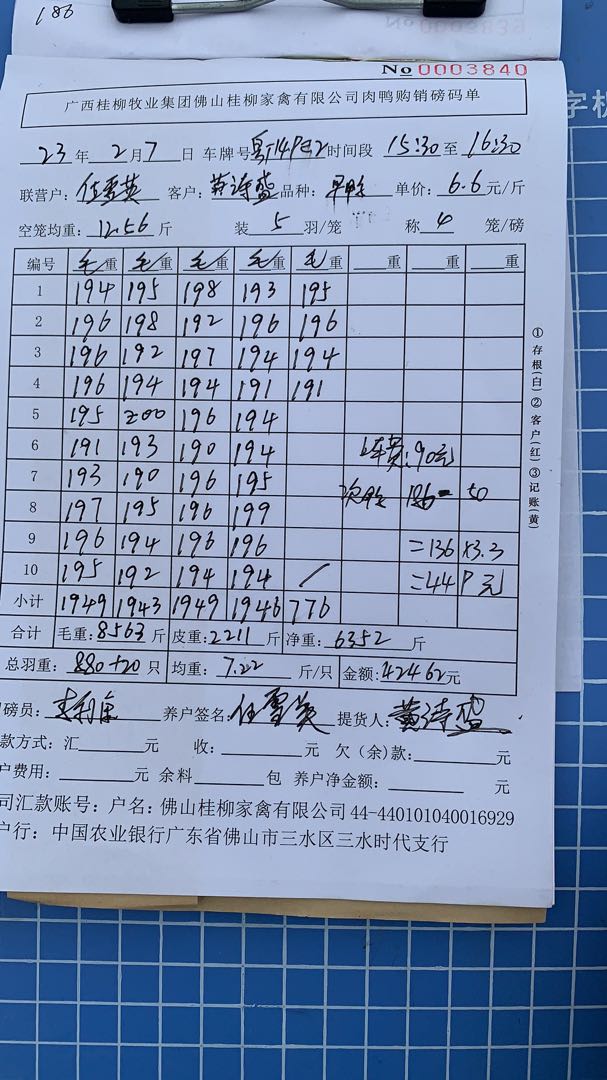 186
No 0003840
广西桂柳牧业集团佛山桂柳家禽有限公司肉鸭购销磅码单
23 年 2 月 7 日 车牌号 时间段 15:30 至 16:30
联营户: 任雪英 客户: 黄诗盛 品种: 单价: 6.6 元/斤
空笼均重: 12.56 斤 装 5 羽/笼 称 4 笼/磅
编号 毛重 毛重 毛重 毛重 毛重 重 重 重
1 194 195 198 193 195
2 196 198 192 196 196
3 196 192 197 194 194
4 196 194 194 191 191
5 195 200 196 194
6 191 193 190 194 车费: 90元
7 193 190 196 195 次鸭 186- 50
8 197 195 196 199
9 196 194 196 196 =136 ×3.3
10 195 192 194 194 / =449元
小计 1949 1943 1949 1946 776
合计 毛重: 8563 斤 皮重: 2211 斤 净重: 6352 斤
总羽重: 880+20 只 均重: 7.22 斤/只 金额: 42462 元
磅员: 养户签名: 任雪英 提货人: 黄诗盛
款方式: 汇 元 收: 元 欠(余)款: 元
户费用: 元 余料 包 养户净金额: 元
司汇款账号: 户名: 佛山桂柳家禽有限公司 44-440101040016929
户行: 中国农业银行广东省佛山市三水区三水时代支行
①存根(白)②客户(红)③记账(黄)